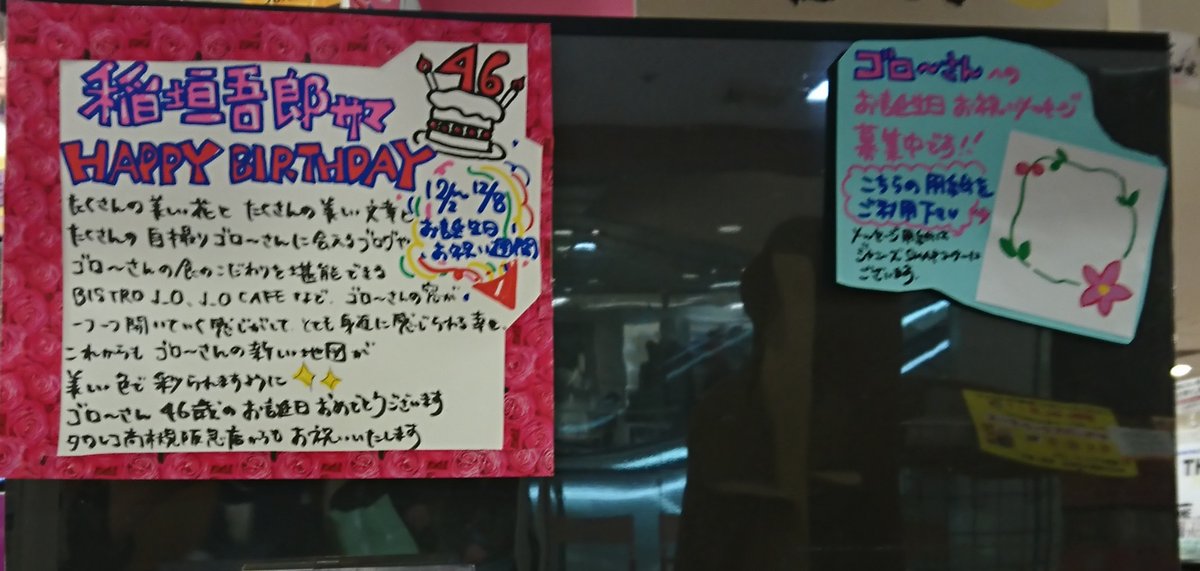 稲垣吾郎サマ
HAPPY BIRTHDAY
46
12/2~12/8
お誕生日
お祝い週間
たくさんの美しい花と たくさんの美しい文章と
たくさんの自撮りゴロ〜さんに会えるブログや
ゴロ〜さんの食のこだわりを堪能できる
BISTRO J_O、J_O CAFEなど、ゴロ〜さんの窓が
一つ一つ開いていく感じがして とても身近に感じられる幸せ。
これからも ゴロ〜さんの新しい地図が
美しい色で 彩られますように
ゴロ〜さん 46歳のお誕日 おめでとうございます
タワレコ高槻阪急店からも お祝いいたします
ゴロ〜さんへの
お誕生日 お祝いメッセージ
募集中です!!
こちらの用紙を
ご利用下さい
メッセージ用紙は
ジャニーズSMAPコーナーに
ございます。